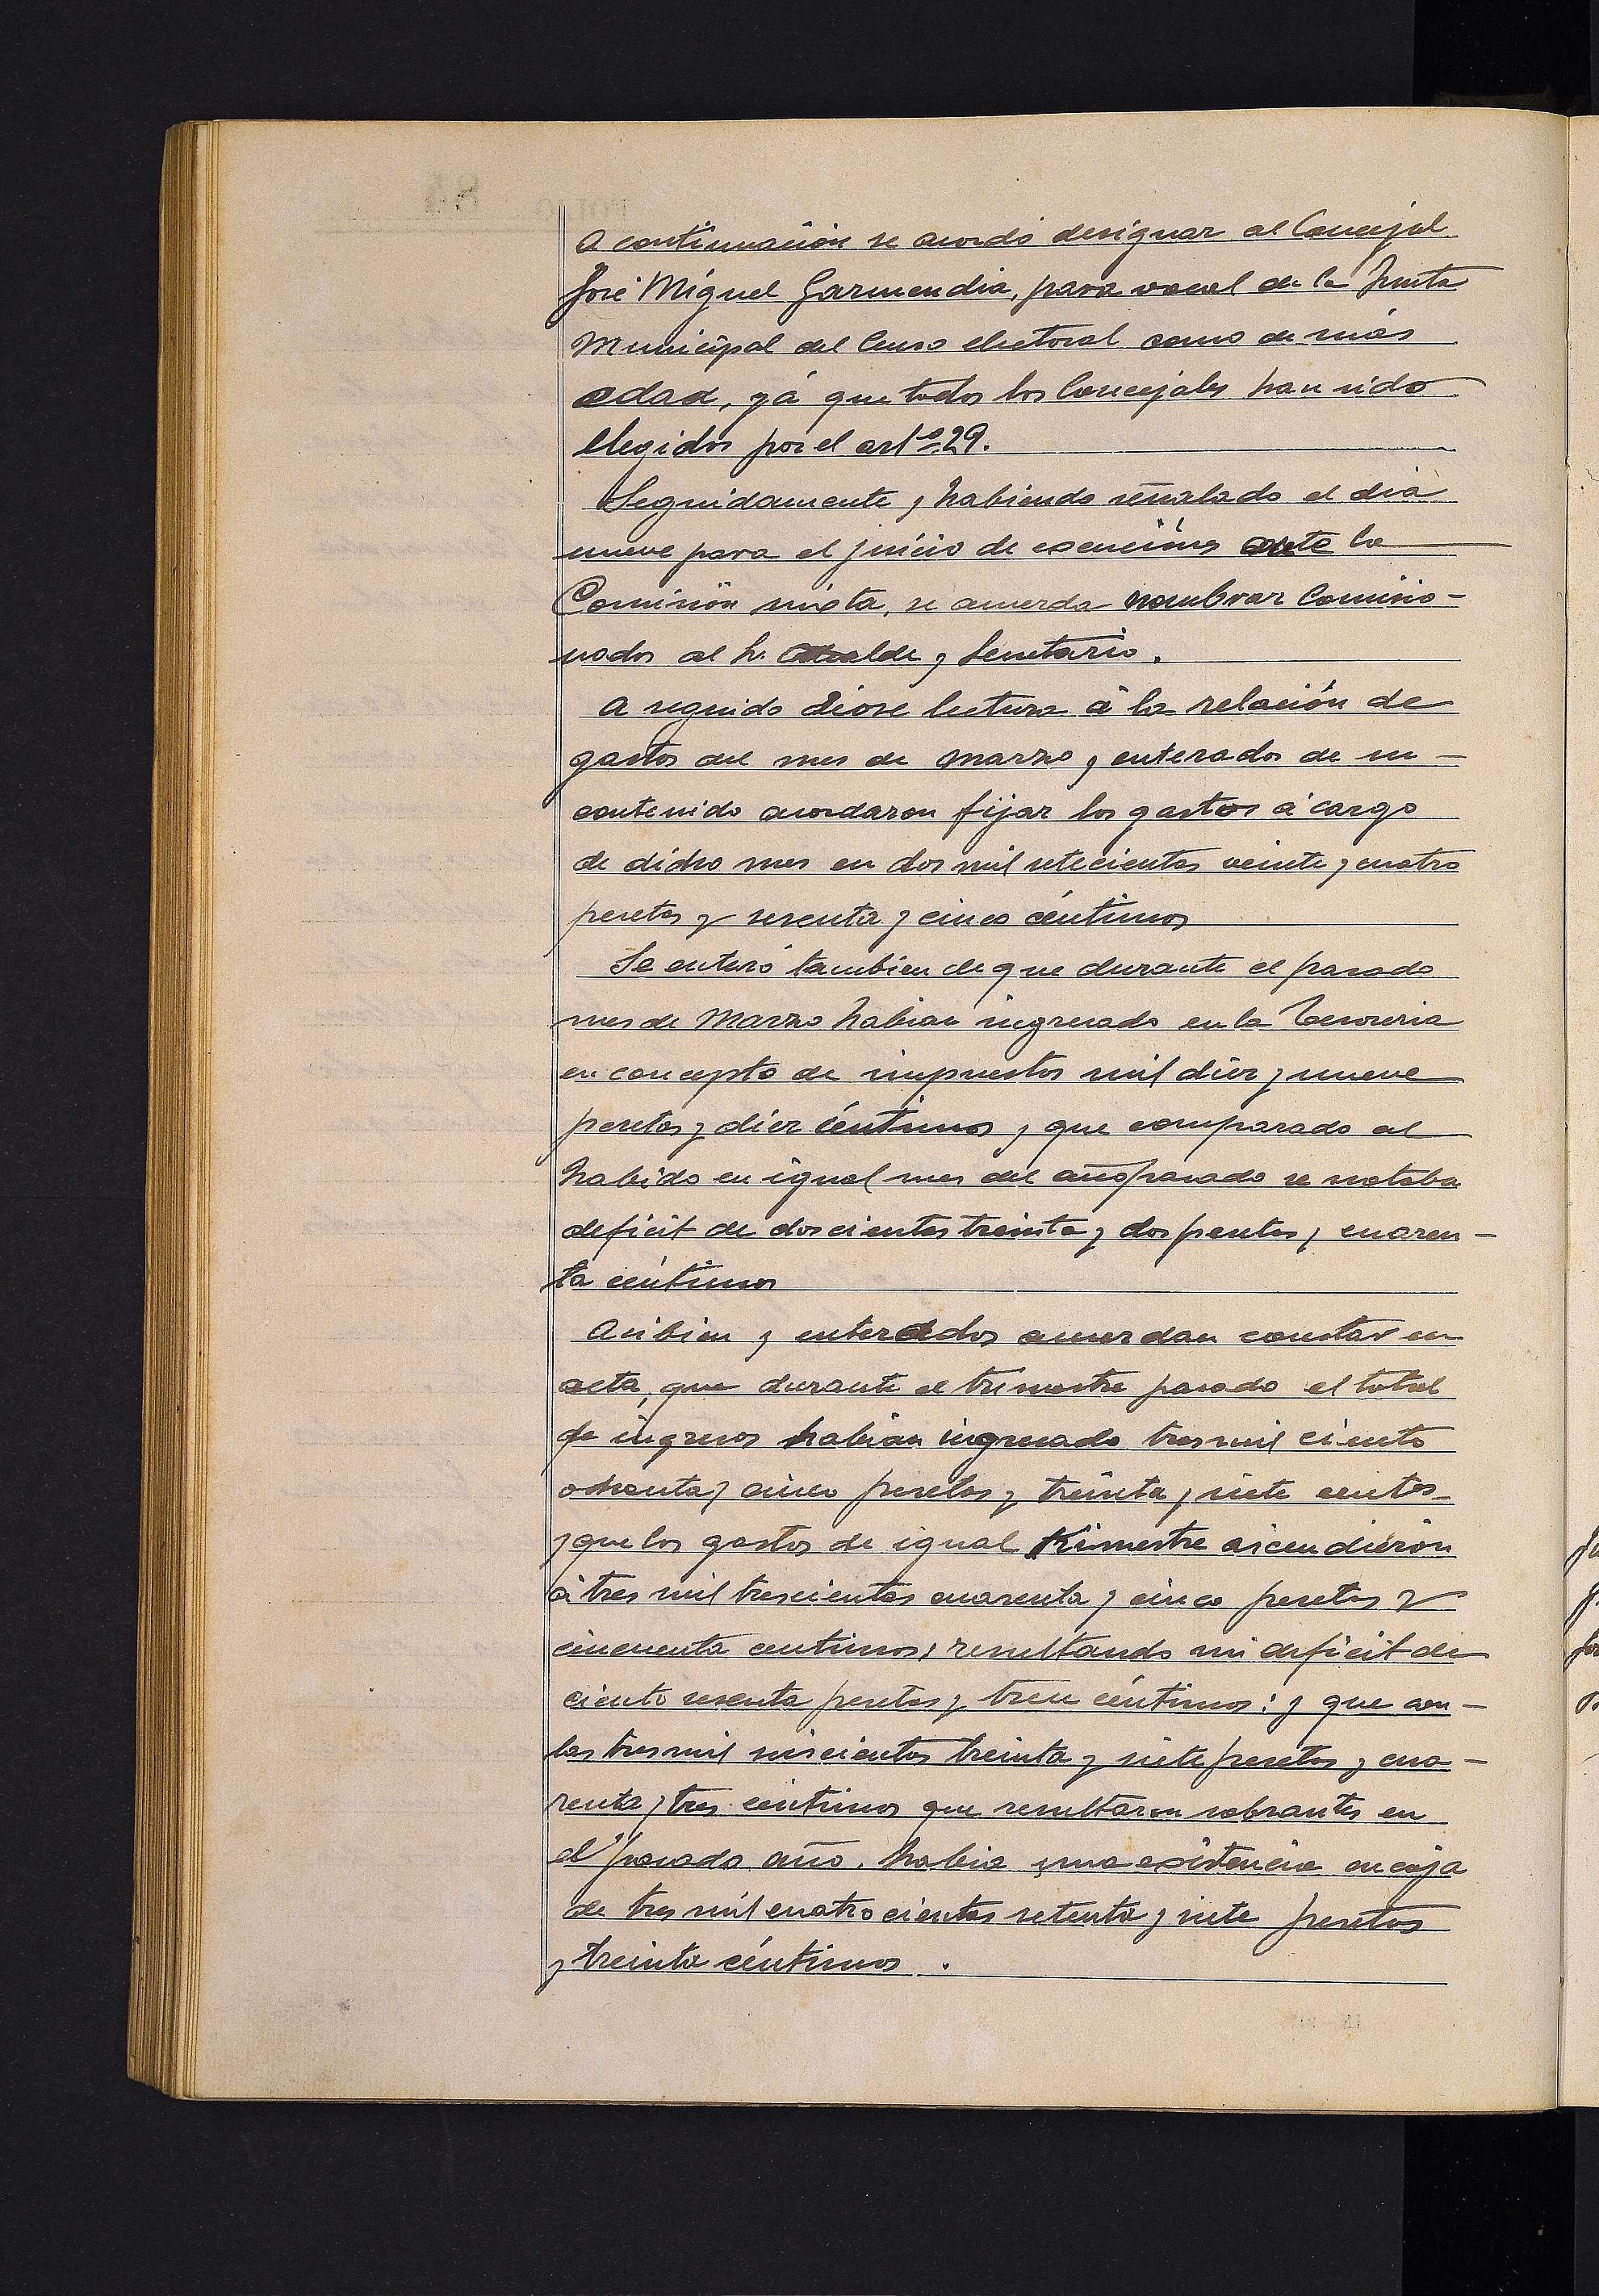 A continuación se acordó designar al Concejal
José Miguel Garmendia, para vocal de la Junta
Municipal del Censo electoral como de más
edad, yá que todos los Concejales han sido
elegidos por el artº 29.
Seguidamente y habiendo señalado el dia
nueve para el juicio de exenciónes ante la
Comisión mixta, se acuerda nombrar Comisio-
nados al Sr. Alcalde y Secretario.
A seguido dióse lectura á la relación de
gastos del mes de Marzo y enterados de su
contenido acordaron fijar los gastos á cargo
de dicho mes en dos mil setecientas veinte y cuatro
pesetas y sesenta y cinco céntimos
Se enteró tambien de que durante el pasado
mes de Marzo habian ingresado en la Tesoreria
en concepto de impuestos mil diez y nueve
pesetas y diez céntimos y que comparado al
habido en igual mes del año pasado se notaba
deficit de doscientas treinta y dos pesetas y cuaren-
ta céntimos
Asi bien y enterados acuerdan constar en
acta, que durante el trimestre pasado el total
de ingresos habian ingresado tres mil ciento
ochenta y cinco pesetas y treinta y siete centos
y que los gastos de igual trimestre ascendieron
á tres mil trescientas cuarenta y cinco pesetas y
cincuenta centimos; resultando un deficit de
ciento sesenta pesetas y trece céntimos: y que con
las tres mil seiscientas treinta y siete pesetas y cua-
renta y tres céntimos que resultaron sobrantes en
el pasado año, habia una existencia en caja
de tres mil cuatrocientas setenta y siete pesetas
y treinta céntimos.